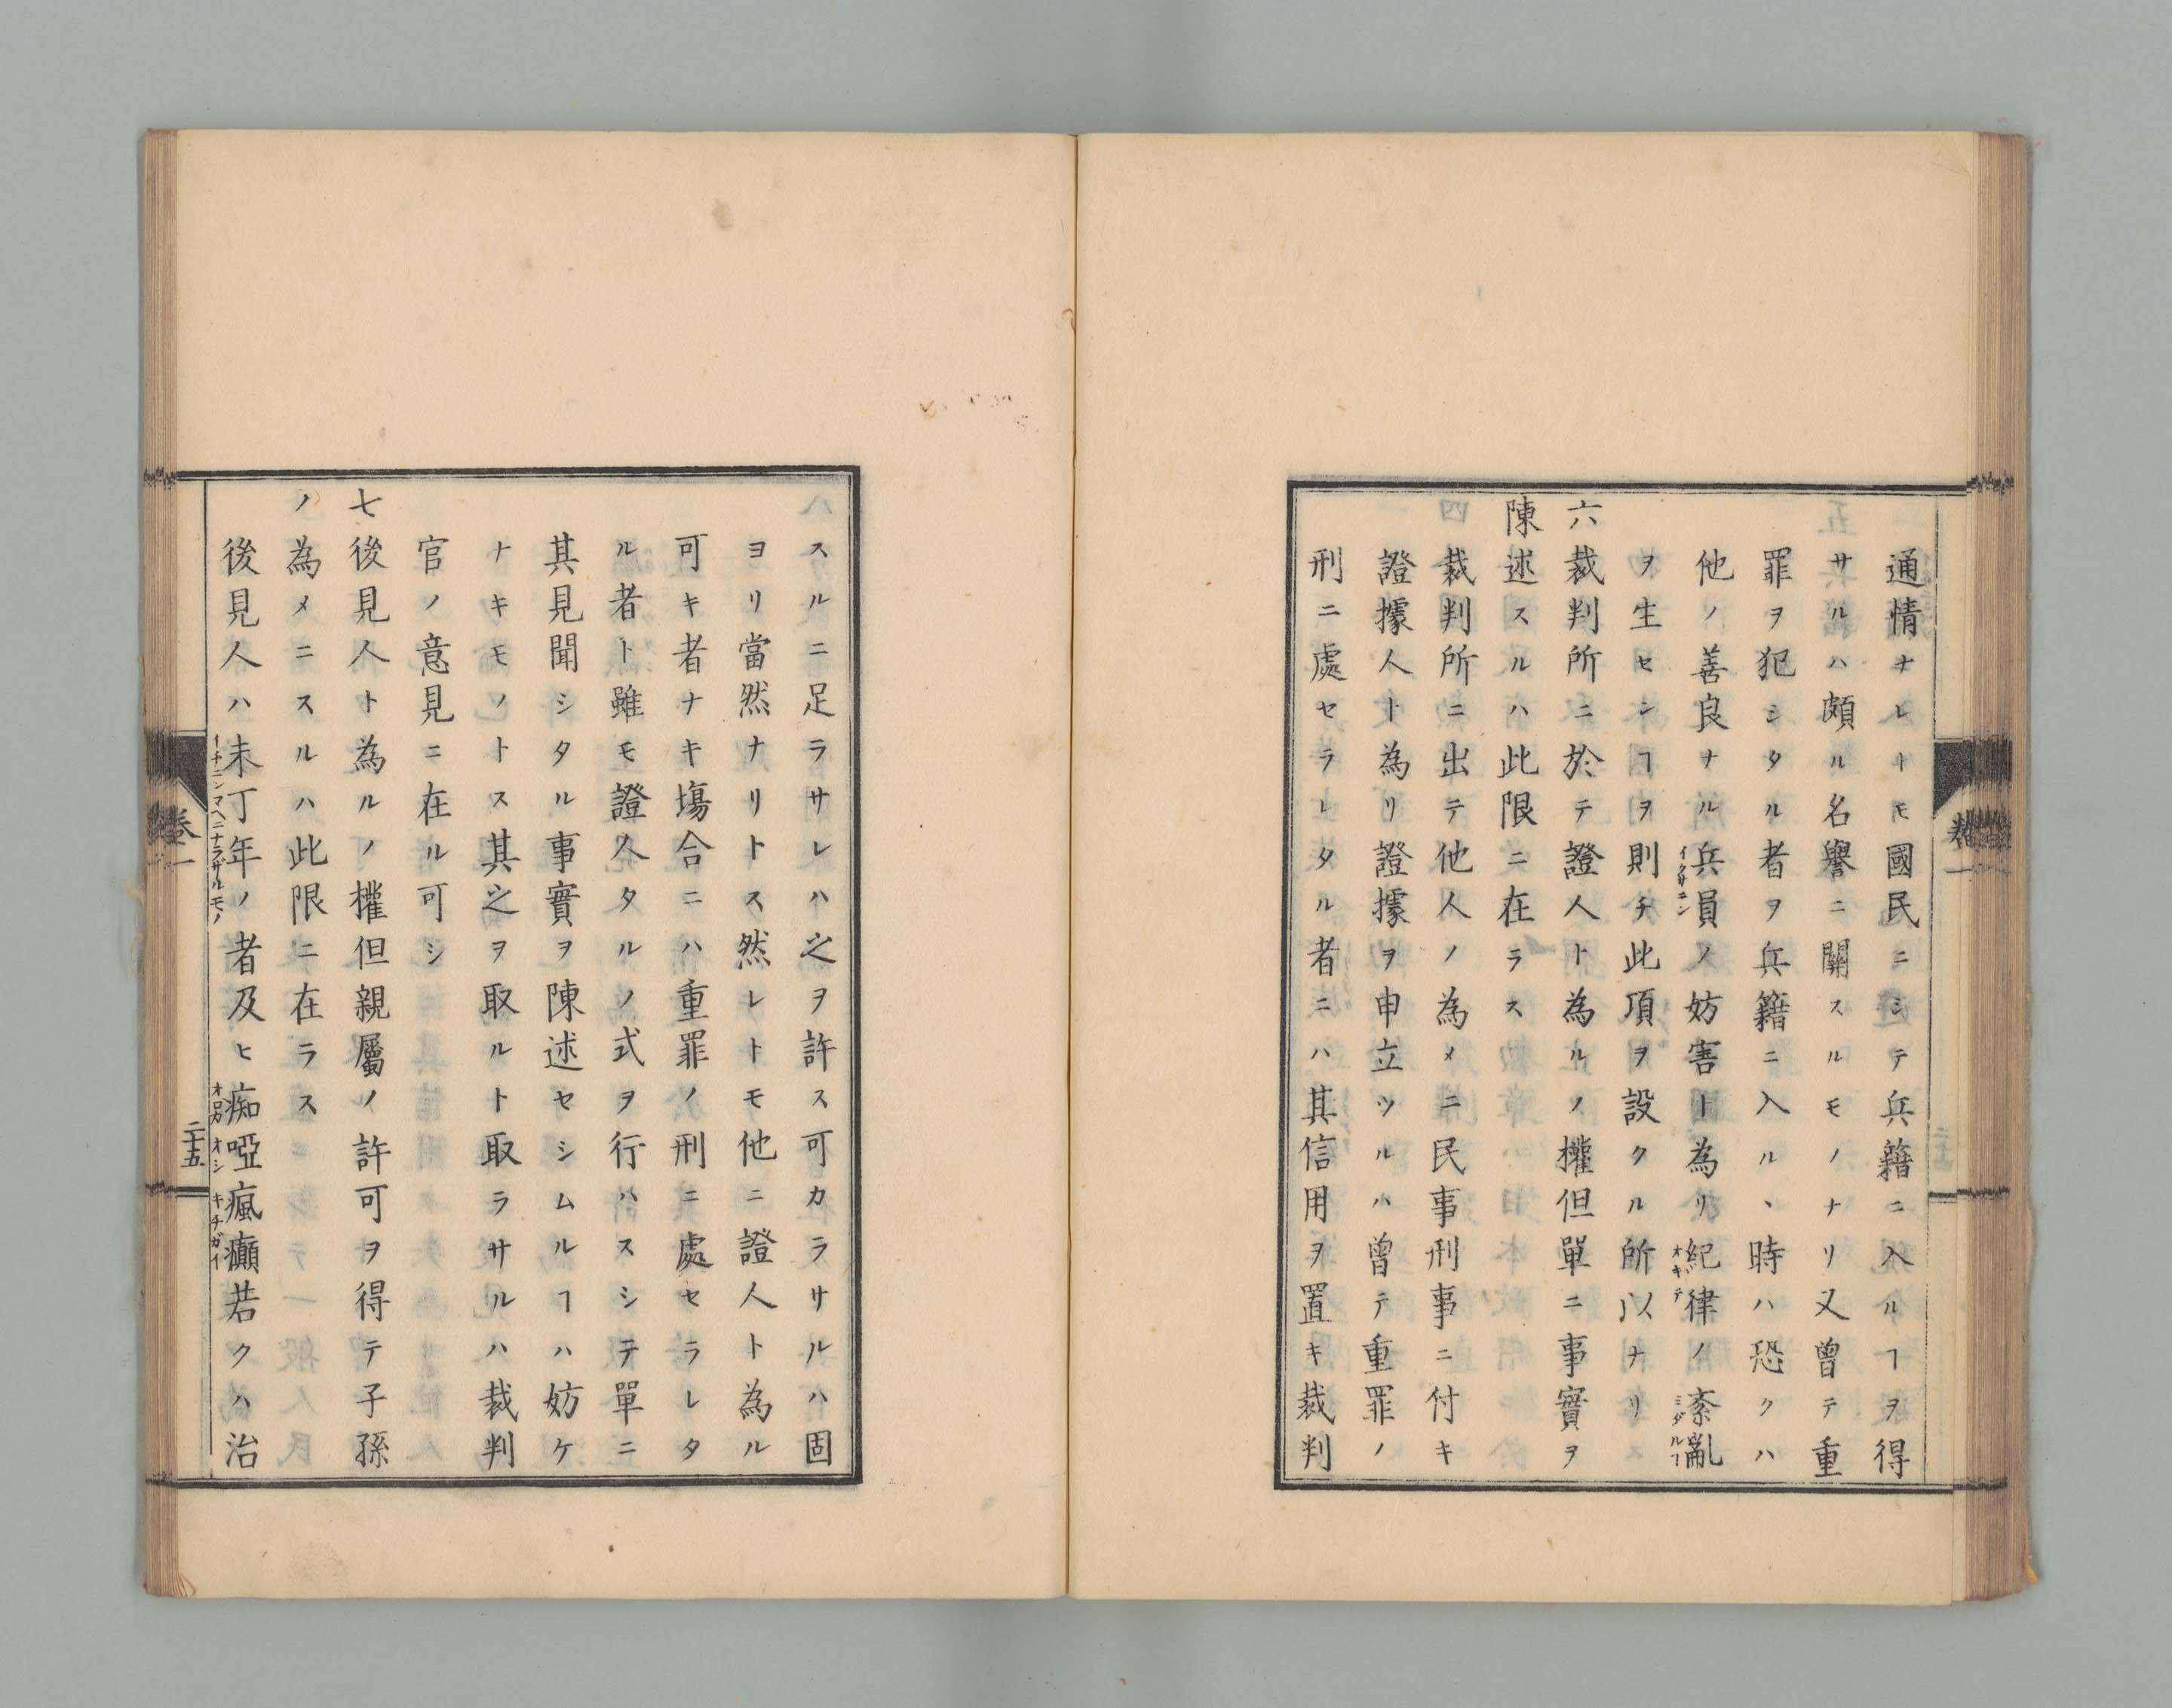 通情ナレトモ國民ニシテ兵籍ニ入ルヿヲ得
サルハ頗ル名譽ニ關スルモノナリ又曾テ重
罪ヲ犯シタル者ヲ兵籍ニ入ルヽ時ハ恐クハ
他ノ善良ナル兵員ノ妨害ト為リ紀律ノ紊亂
イクサニン
オキテ
ミダルヿ
ヲ生セシヿヲ則チ此項ヲ設クル所以ナリ
六裁判所ニ於テ證人ト為ルノ權但單ニ事實ヲ
陳述スルハ此限ニ在ラス
裁判所ニ出テ他人ノ為メニ民事刑事ニ付キ
證據人ト為リ證據ヲ申立ツルハ曾テ重罪ノ
刑ニ處セラレタル者ニハ其信用ヲ置キ裁判
スルニ足ラサレハ之ヲ許ス可カラサルハ固
ヨリ當然ナリトス然レトモ他ニ證人ト為ル
可キ者ナキ塲合ニハ重罪ノ刑ニ處セラレタ
ル者ト雖モ證人タルノ式ヲ行ハスシテ單ニ
其見聞シタル事實ヲ陳述セシムルヿハ妨ケ
ナキモノトス其之ヲ取ルト取ラサルハ裁判
官ノ意見ニ在ル可シ
七後見人ト為ルノ權但親屬ノ許可ヲ得テ子孫
ノ為メニスルハ此限ニ在ラス
後見人ハ未丁年ノ者及ヒ痴啞瘋癲若クハ治
イチニンマヘニナラザルモノ
オロカ
オシ
キチガイ
卷一
二十五